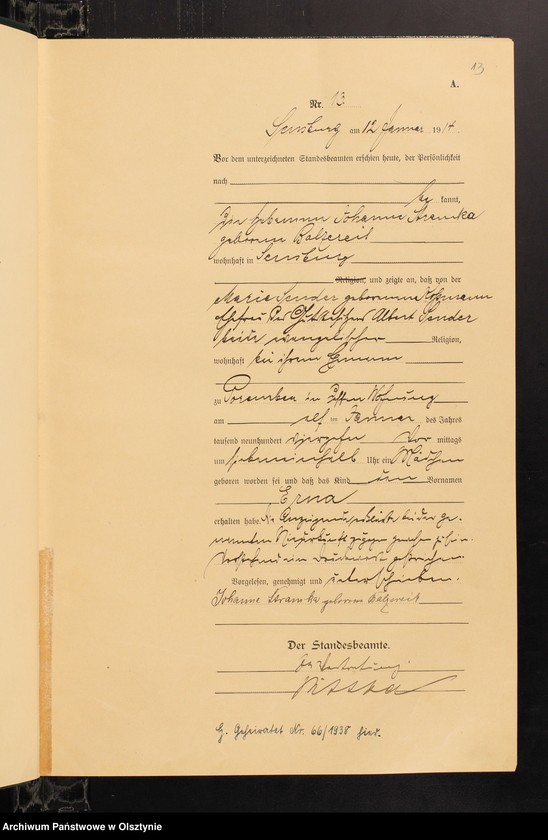 13
A.
Nr. 13
Sensburg am 12 Januar 1914.
Vor dem unterzeichneten Standesbeamten erschien heute, der Persönlichkeit
nach
be kannt,
die Hebamme Johanne Stramka
geborene Balzereit
wohnhaft in Sensburg
Religion, und zeigte an, daß von der
Marie Sender geborenen
Ehefrau des Albert Sender
beide evangelischer Religion,
wohnhaft bei ihrem Ehemann
zu in Wohnung
am elf ten Januar des Jahres
tausend neunhundert vierzehn Vor mittags
um halb Uhr ein Mädchen
geboren worden sei und daß das Kind den Vornamen
Erna
erhalten habe. Die Anzeigende erklärte bei der ge-
nannten Niederkunft zugegen gewesen zu sein.
Vorgelesen, genehmigt und unterschrieben.
Johanne Stramka geborene Balzereit
Der Standesbeamte.
In Vertretung.
G. Geheiratet Nr. 66/1938 hier.
Archiwum Państwowe w Olsztynie